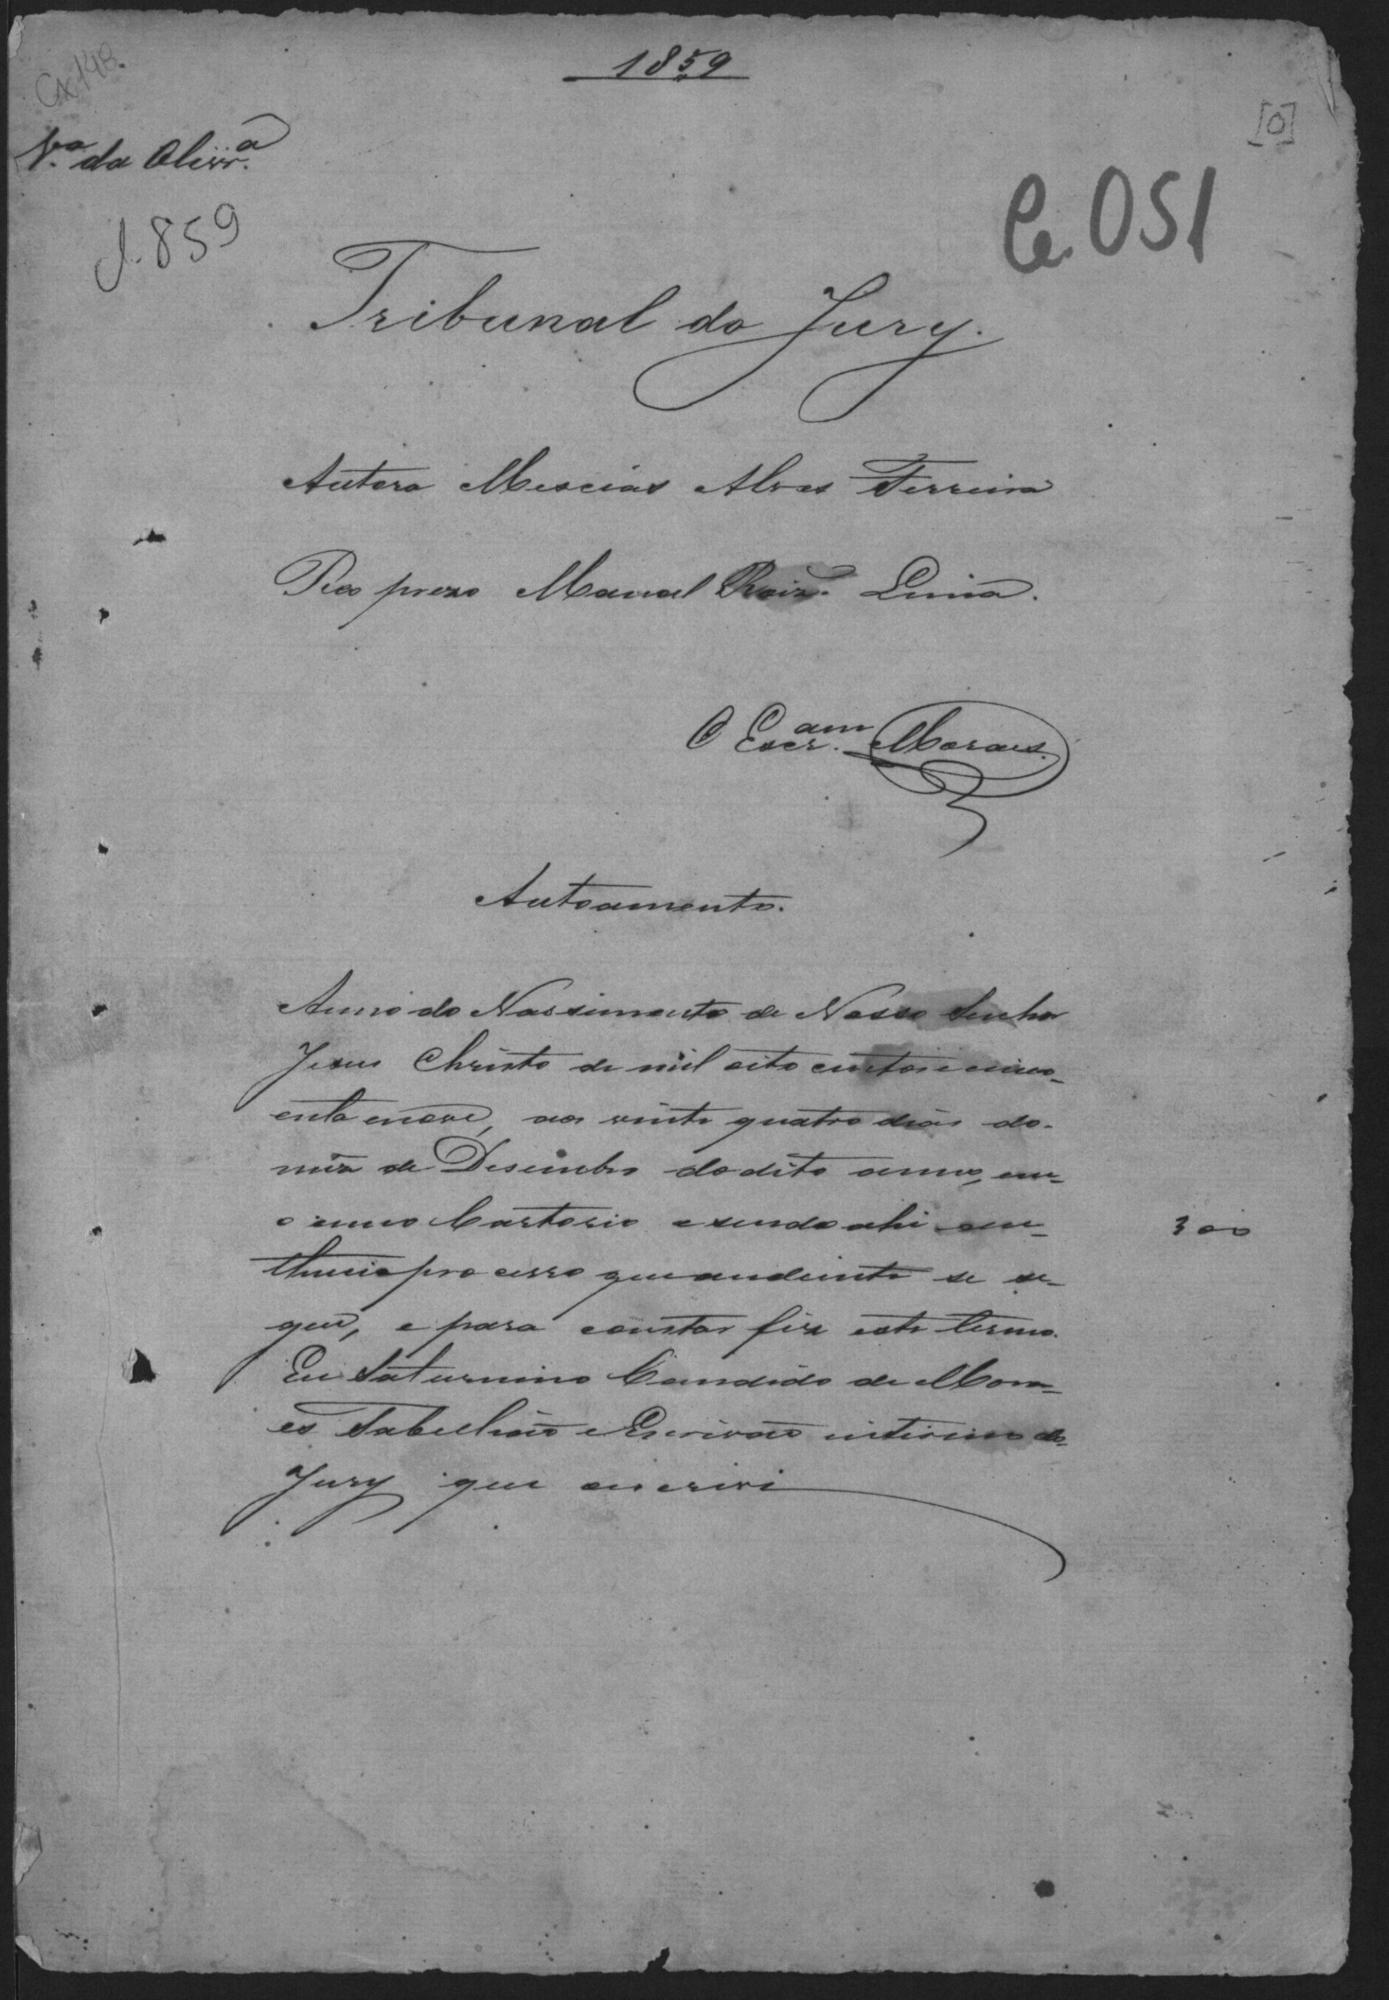 Cx 148.
1859
[0]
V.ª da Olivr.ª
Cr. 051
1.859
Tribunal do Jury.
Autora Mescias Alves Ferreira
Reo prezo Manoel Roiz. Lima.
O Escr.am Moraes.
Autoamento.
Anno do Nassimento de Nosso Senhor
Jesus Christo de mil oito centos e cinco-
enta e nove, aos vinte quatro dias do
mez de Desembro do dito anno, em
o meo Cartorio e sendo ahi au-
thuei o processo que andeinte se se-
gue, e para constar fiz este termo.
300
Eu Saturnino Candido de Mora-
es Tabellião e Escrivão interino do
Jury que escrivi